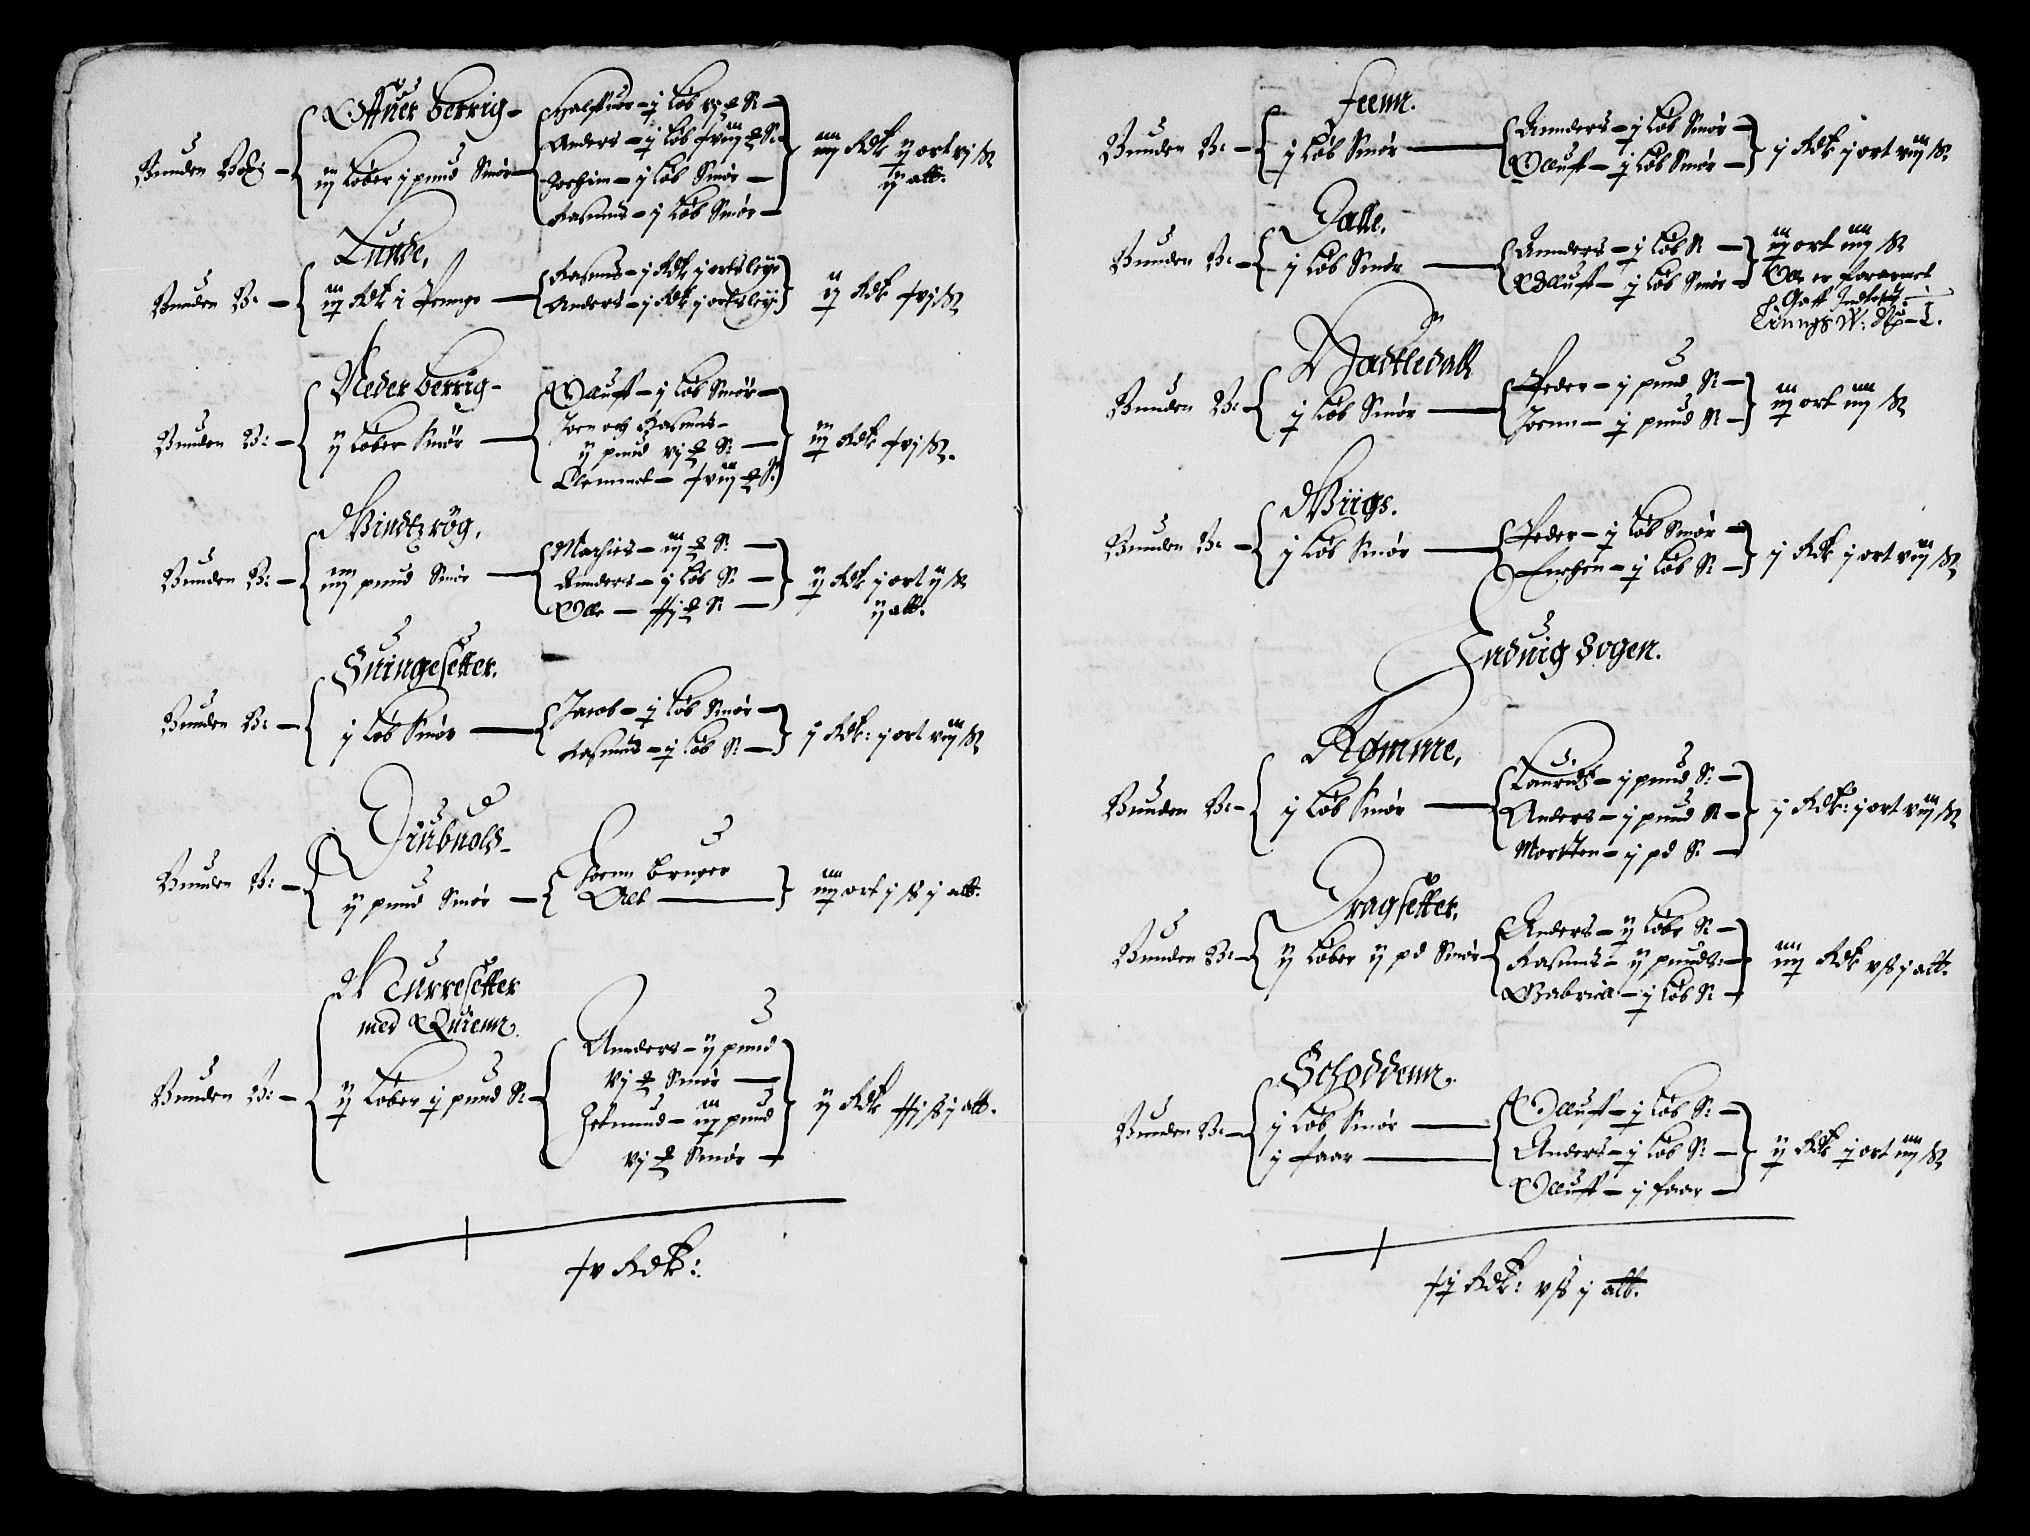 Offuer berrig
Bunden B: iij løber j pund Smør
Halffuor - j løb vj S:
Anders - j løb
Jochim - j løb Smør
Rasmus - j løb Smør
iiij Rdr ij ort vj ß
ij alb.
Lunde,
Bunden B: iij Rdr i Penge
Rasmus - j Rdr j ortsleye
Anders - j Rdr j ortsleye
ij Rdr xvj ß
Neder berrig
Bunden B: ij løber Smør
Olluff - j løb Smør
Joen och Rasmus
ij pund vj S:
Clemmet - xviij S:
iij Rdr xvj ß.
Windtzrög,
Bunden B: iiij pund Smør
Mathies - iij S:
Anders - j løb S:
Olle - xxj S:
ij Rdr j ort ij ß
ij alb.
Suingesetter.
Bunden B: j løb Smør
Jacob - j løb Smør
Rasmus - j løb S:
j Rdr: j ort viij ß
Diubuols
Bunden B: ij pund Smør
Joenn bruger
Alt
iij ort j ß j alb.
Murresetter
med Quienn.
Bunden B: ij løber j pund S:
Annders - ij pund
vj Smør
Jetmund - iij pund
vj Smør
ij Rdr xxj ß j alb.
xv Rdr:
Feem.
Bunden B: j løb Smør
Annders - j løb Smør
Olluff - j løb Smør
j Rdr j ort viij ß
Dalle,
Bunden B: j løb Smør
Annders - j løb S
Olluff - j løb Smør
iij ort iiij ß
Olle er forarmet
Hadtledall
Bunden B: j løb Smør
Peder - j pund S:
Joenn - j pund S:
iij ort iiij ß
Wiigs.
Bunden B: j løb Smør
Peder - j løb Smør
Jochim - j løb S:
j Rdr j ort viij ß
Induig Sogen.
Rømme,
Bunden B: j løb Smør
Lauridtz - j pund S:
Anders - j pund S:
Mortten - j pd S:
j Rdr: j ort viij ß
Dragsetter.
Bunden B: ij løber ij pd Smør
Anders - ij løbe S:
Rasmus - ij pund S:
Gabriel - j løb S:
iiij Rdr v ß j alb.
Schoddenn.
Bunden B: j løb Smør
j faar
Olluff - j løb S:
Anders - j løb S:
Olluff - j faar
ij Rdr j ort iiij ß
xij Rdr: v ß j alb.